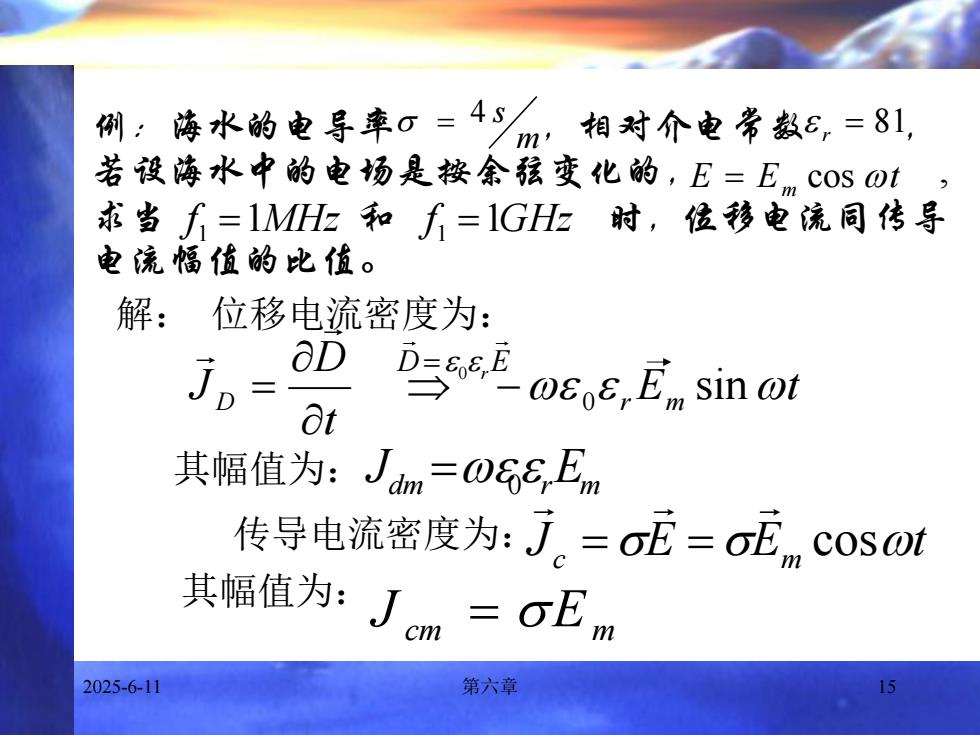 例：海水的电导率σ = 4 s/m，相对介电常数ε_r = 81,
若设海水中的电场是按余弦变化的，E = E_m cos ωt ，
求当 f_1 = 1MHz 和 f_1 = 1GHz 时，位移电流同传导
电流幅值的比值。
解： 位移电流密度为：
\vec{J}_D = ∂\vec{D}/∂t \vec{D}=ε_0ε_r\vec{E} ⇒ −ωε_0ε_r\vec{E}_m sin ωt
其幅值为：J_{dm} = ωε_0ε_rE_m
传导电流密度为：\vec{J}_c = σ\vec{E} = σ\vec{E}_m cosωt
其幅值为：J_{cm} = σE_m
2025-6-11 第六章 15